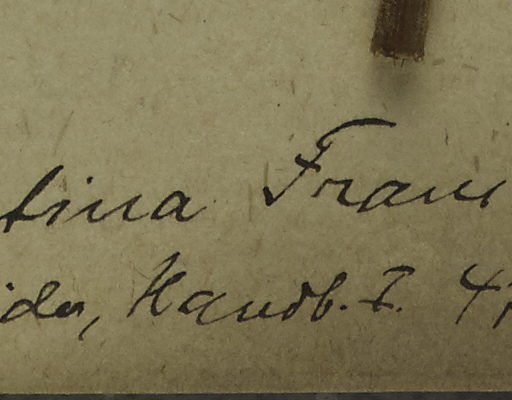 tina Fran
ider, Handb. I. 4